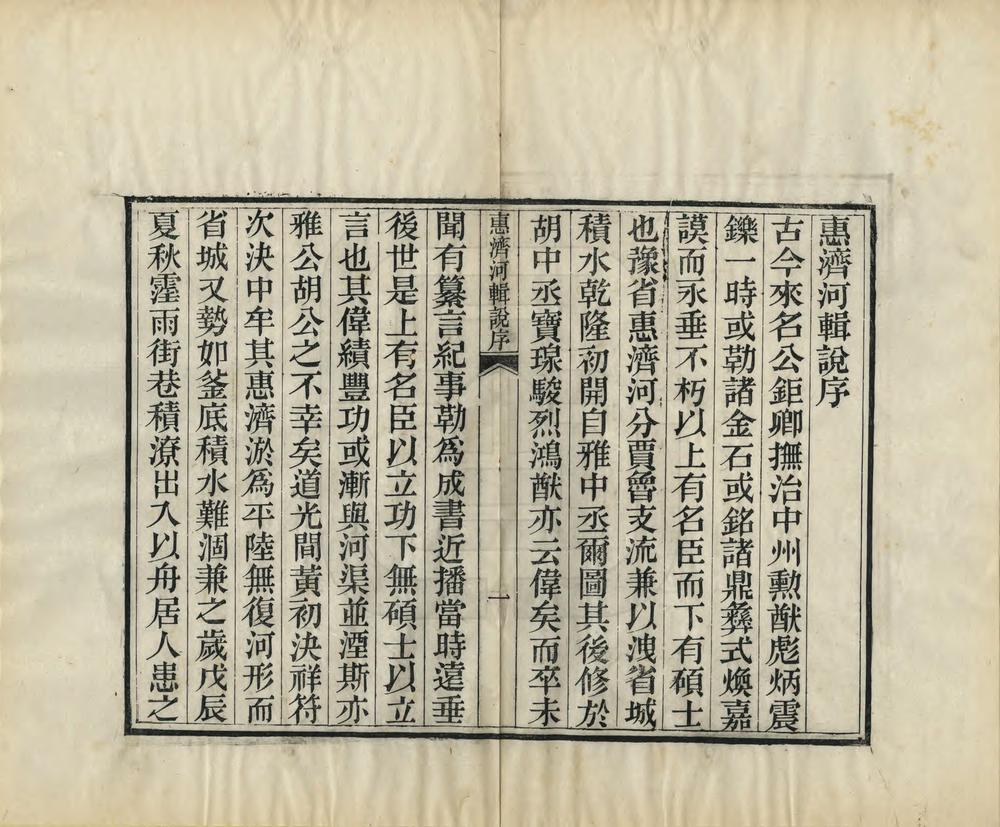 惠濟河輯說序
古今來名公鉅卿撫治中州勳猷彪炳震
鑠一時或勒諸金石或銘諸鼎彝式煥嘉
謨而永垂不朽以上有名臣而下有碩士
也豫省惠濟河分賈魯支流兼以洩省城
積水乾隆初開自雅中丞爾圖其後修於
胡中丞寶瑔駿烈鴻猷亦云偉矣而卒未
惠濟河輯說序
一
聞有纂言紀事勒爲成書近播當時遠垂
後世是上有名臣以立功下無碩士以立
言也其偉績豐功或漸與河渠並湮斯亦
雅公胡公之不幸矣道光間黃初決祥符
次決中牟其惠濟淤爲平陸無復河形而
省城又勢如釜底積水難涸兼之歲戊辰
夏秋霪雨街巷積潦出入以舟居人患之